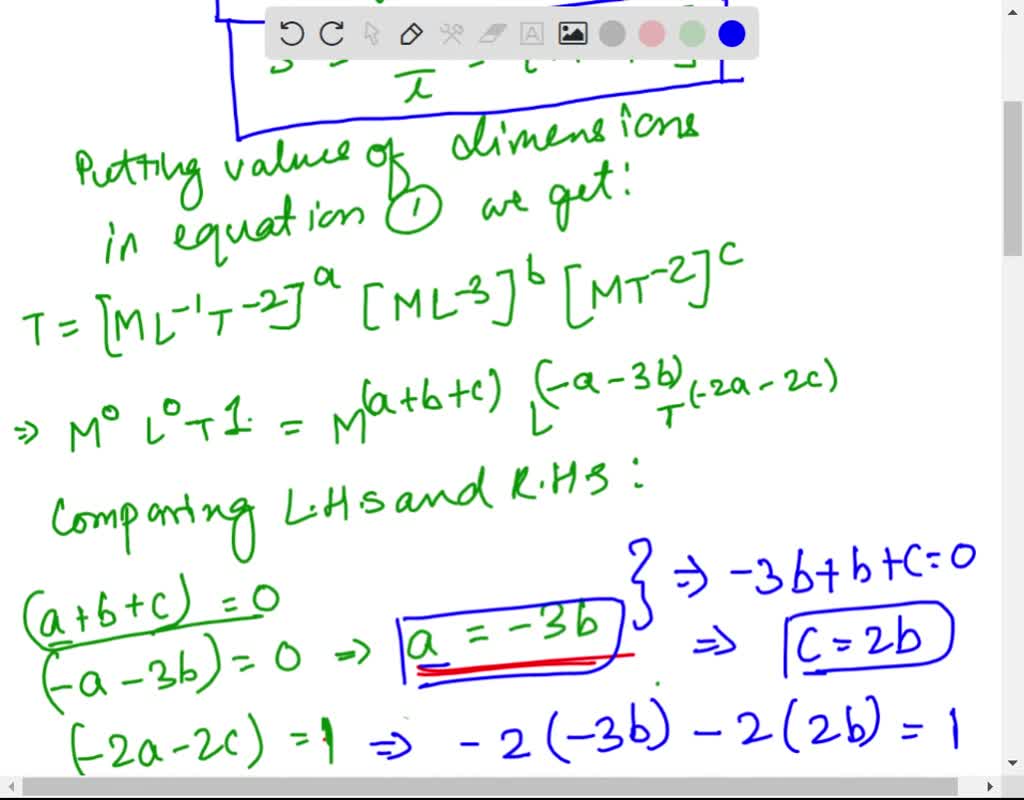 Putting values of dimensions
in equation ① we get:
T = [ML⁻¹T⁻²]ᵃ [ML⁻³]ᵇ [MT⁻²]ᶜ
⇒ M⁰ L⁰ T1 = M^(a+b+c) L^(-a-3b) T^(-2a-2c)
Comparing L.H.S and R.H.S :
(a+b+c) = 0
(-a-3b) = 0 ⇒ a = -3b } ⇒ -3b+b+c=0
⇒ c = 2b
(-2a-2c) = 1 ⇒ -2(-3b) - 2(2b) = 1